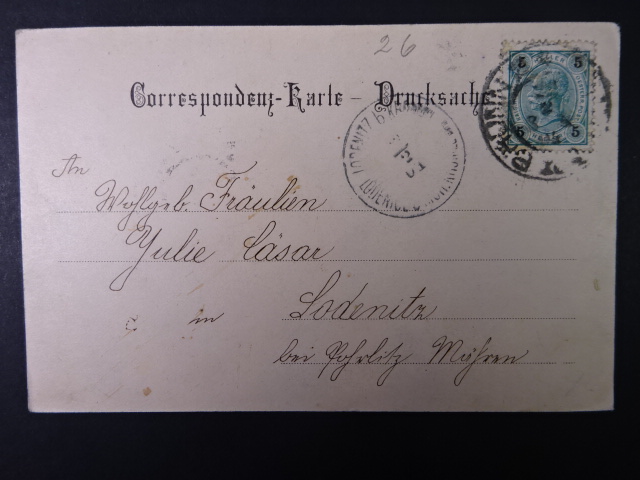 26
Correspondenz-Karte – Drucksache
5 5
5 5
LODENITZ
01
An
Wohlgeb. Fräulien
Yulie Cäsar
in Lodenitz
bei Pohrlitz Mähren